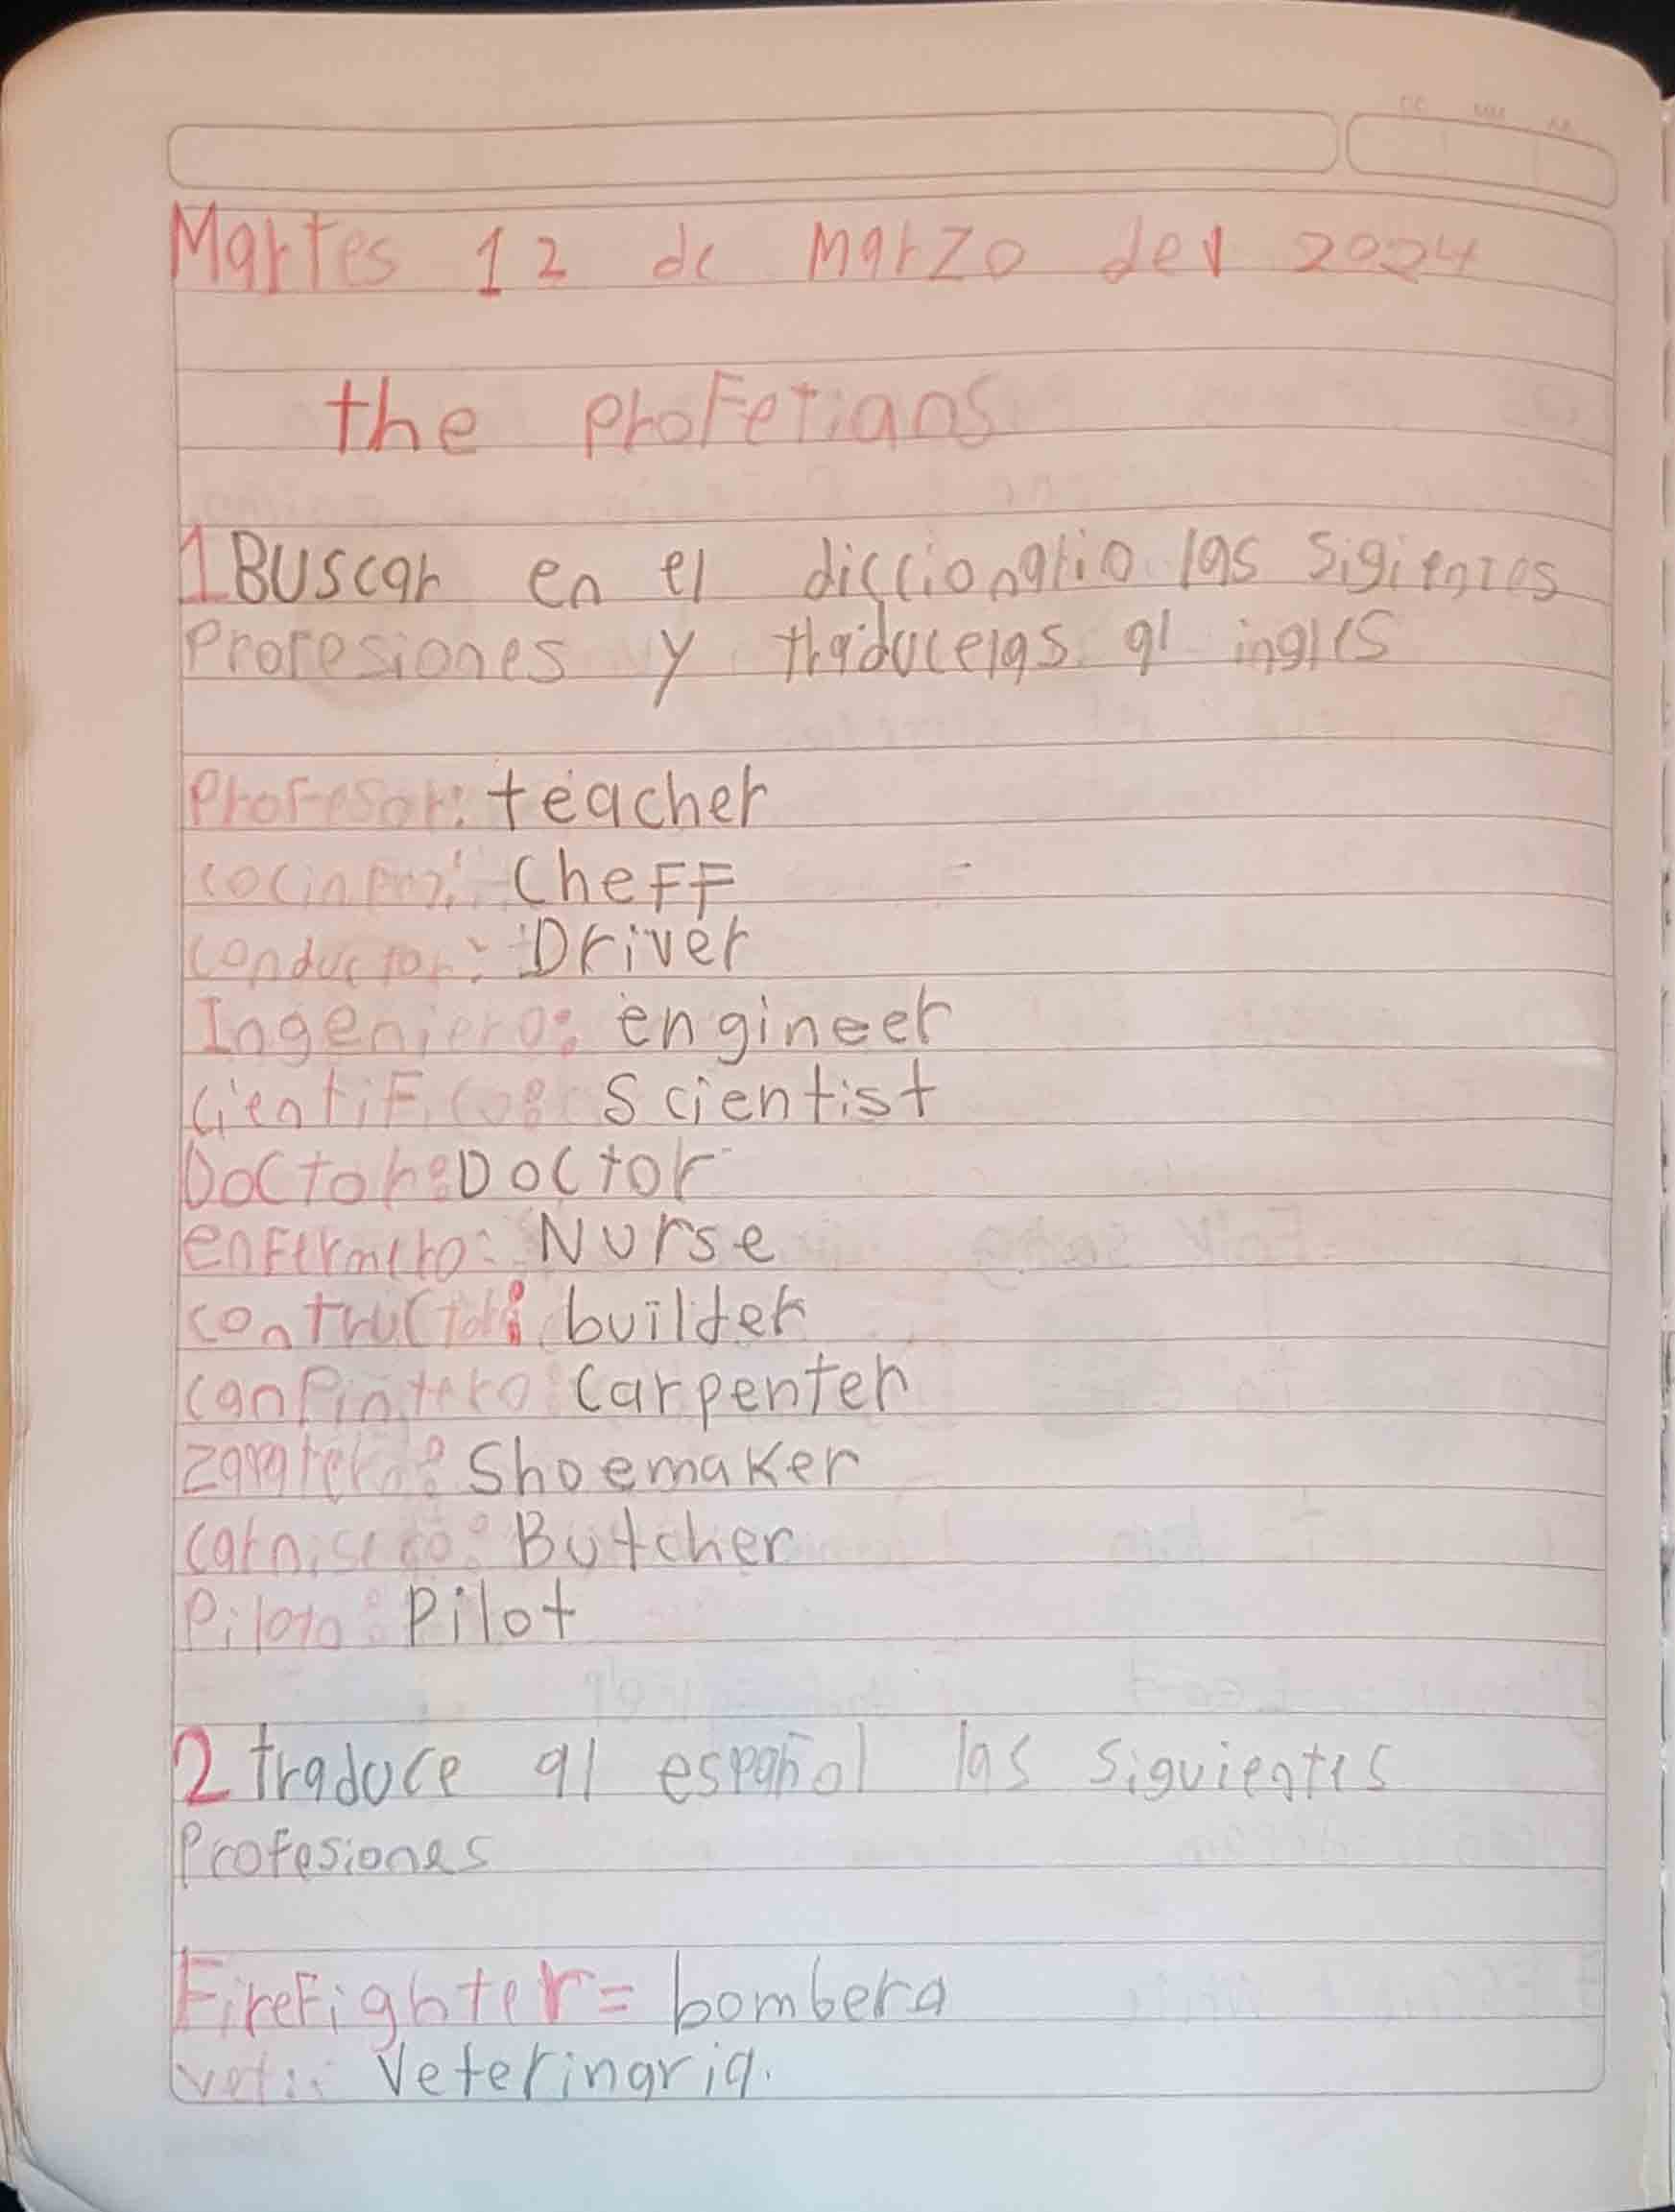 Martes 12 de Marzo del 2024
the Profetians
1 Buscar en el diccionario las sigientes
Profesiones y traducelas al ingles
Profesor: teacher
cocinero: Cheff
conductor: Driver
Ingeniero: engineer
cientifico: Scientist
Doctor: Doctor
enfermero: Nurse
contructor: builder
canpintero: Carpenter
zapatero: Shoemaker
carnisero: Butcher
Piloto: Pilot
2 traduce al español las siguientes
Profesiones
FireFighter = bombera
vet: Veterinaria.